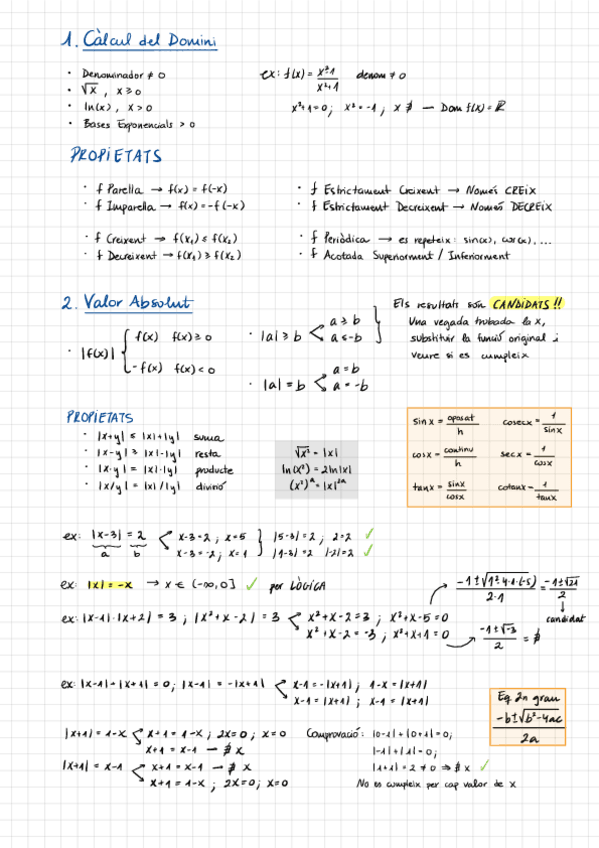 1. Càlcul del Domini
· Denominador ≠ 0
· √x , x ≥ 0
· ln(x) , x > 0
· Bases Exponencials > 0
ex: f(x) = x²-1 / x²+1 denom ≠ 0
x²+1=0; x²=-1; x ∄ — Dom f(x) = ℝ
PROPIETATS
· f Parella → f(x) = f(-x)
· f Imparella → f(x) = -f(-x)
· f Creixent → f(x₁) ≤ f(x₂)
· f Decreixent → f(x₁) ≥ f(x₂)
· f Estrictament Creixent → Només CREIX
· f Estrictament Decreixent → Només DECREIX
· f Periòdica → es repeteix: sin(x), cos(x), ...
· f Acotada Superiorment / Inferiorment
2. Valor Absolut
· |f(x)| { f(x) f(x) ≥ 0
-f(x) f(x) < 0
· |a| ≥ b < a ≥ b
a ≤ -b
· |a| = b < a = b
a = -b
Els resultats són CANDIDATS!!
Una vegada trobada la x,
substituir la funció original i
veure si es cumpleix
PROPIETATS
· |x+y| ≤ |x|+|y| suma
· |x-y| ≥ |x|-|y| resta
· |x·y| = |x|·|y| producte
· |x/y| = |x|/|y| divisió
√x² = |x|
ln(x²) = 2ln|x|
(x²)ᵃ = |x|²ᵃ
sinx = oposat / h cosecx = 1 / sinx
cosx = continu / h secx = 1 / cosx
tanx = sinx / cosx cotanx = 1 / tanx
ex: |x-3| = 2 < x-3=2; x=5 } |5-3|=2; 2=2 ✓
a b x-3=-2; x=1 |1-3|=2 |-2|=2 ✓
ex: |x| = -x → x ∈ (-∞,0] ✓ per LÒGICA
ex: |x-1|·|x+2| = 3; |x²+x-2| = 3 < x²+x-2=3; x²+x-5=0
x²+x-2=-3; x²+x+1=0
-1±√1²-4·1·(-5) / 2·1 = -1±√21 / 2
candidat
-1±√-3 / 2 = ∄
ex: |x-1|+|x+1| = 0; |x-1| = -|x+1| < x-1=-|x+1|; 1-x=|x+1|
x-1=|x+1|; x-1=|x+1|
Eq 2n grau
-b±√b²-4ac
2a
|x+1| = 1-x < x+1=1-x; 2x=0; x=0
x+1=x-1 — ∄ x
|x+1| = x-1 < x+1=x-1 — ∄ x
x+1=1-x; 2x=0; x=0
Comprovació: |0-1|+|0+1|=0;
|-1|+|1|=0;
|1+1|=2≠0 ⇒ ∄ x ✓
No es cumpleix per cap valor de x